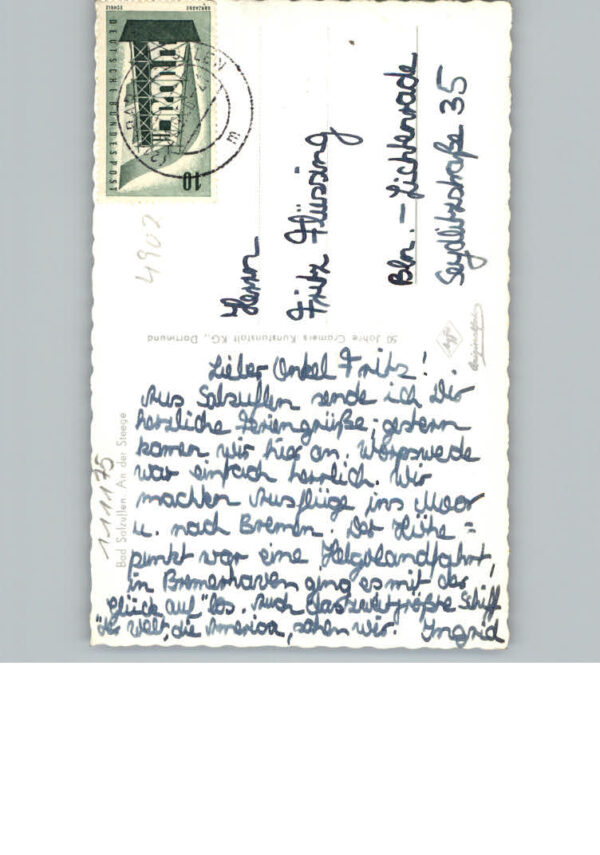 Lieber Onkel Fritz!
Aus Salzuflen sende ich Dir
herzliche Feriengrüße; gestern
kamen wir hier an. Worpswede
war einfach herrlich. Wir
machten Ausflüge ins Moor
u. nach Bremen. Der Höhe=
punkt war eine Helgolandfahrt,
in Bremerhaven ging es mit der
"Glück auf" los. Auch das zweitgrößte Schiff
der Welt, die America, sahen wir. Ingrid
Herrn
Fritz Flüssing
Bln. – Lichtenrade
Seydlitzstraße 35
DEUTSCHE BUNDESPOST
10
4902
50 Jahre Cramers Kunstanstalt KG., Dortmund
Bad Salzuflen. An der Steege
111175